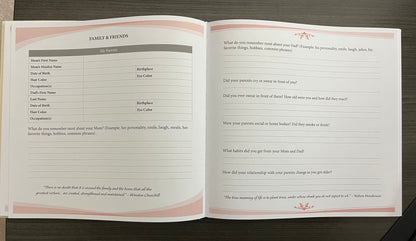 FAMILY & FRIENDS
My Parents
Mom's First Name
Mom's Maiden Name
Date of Birth Birthplace
Hair Color Eye Color
Occupation(s)
Dad's First Name
Last Name
Date of Birth Birthplace
Hair Color Eye Color
Occupation(s)
What do you remember most about your Mom? (Example: her personality, smile, laugh, meals, her
favorite things, hobbies, common phrases)
"There is no doubt that it is around the family and the home that all the
greatest virtues... are created, strengthened and maintained." - Winston Churchill
What do you remember most about your Dad? (Example: his personality, smile, laugh, jokes, his
favorite things, hobbies, common phrases)
Did your parents cry or swear in front of you?
Did you ever swear in front of them? How old were you and how did they react?
Were your parents social or home bodies? Did they smoke or drink?
What habits did you get from your Mom and Dad?
How did your relationship with your parents change as you got older?
"The true meaning of life is to plant trees, under whose shade you do not expect to sit." - Nelson Henderson